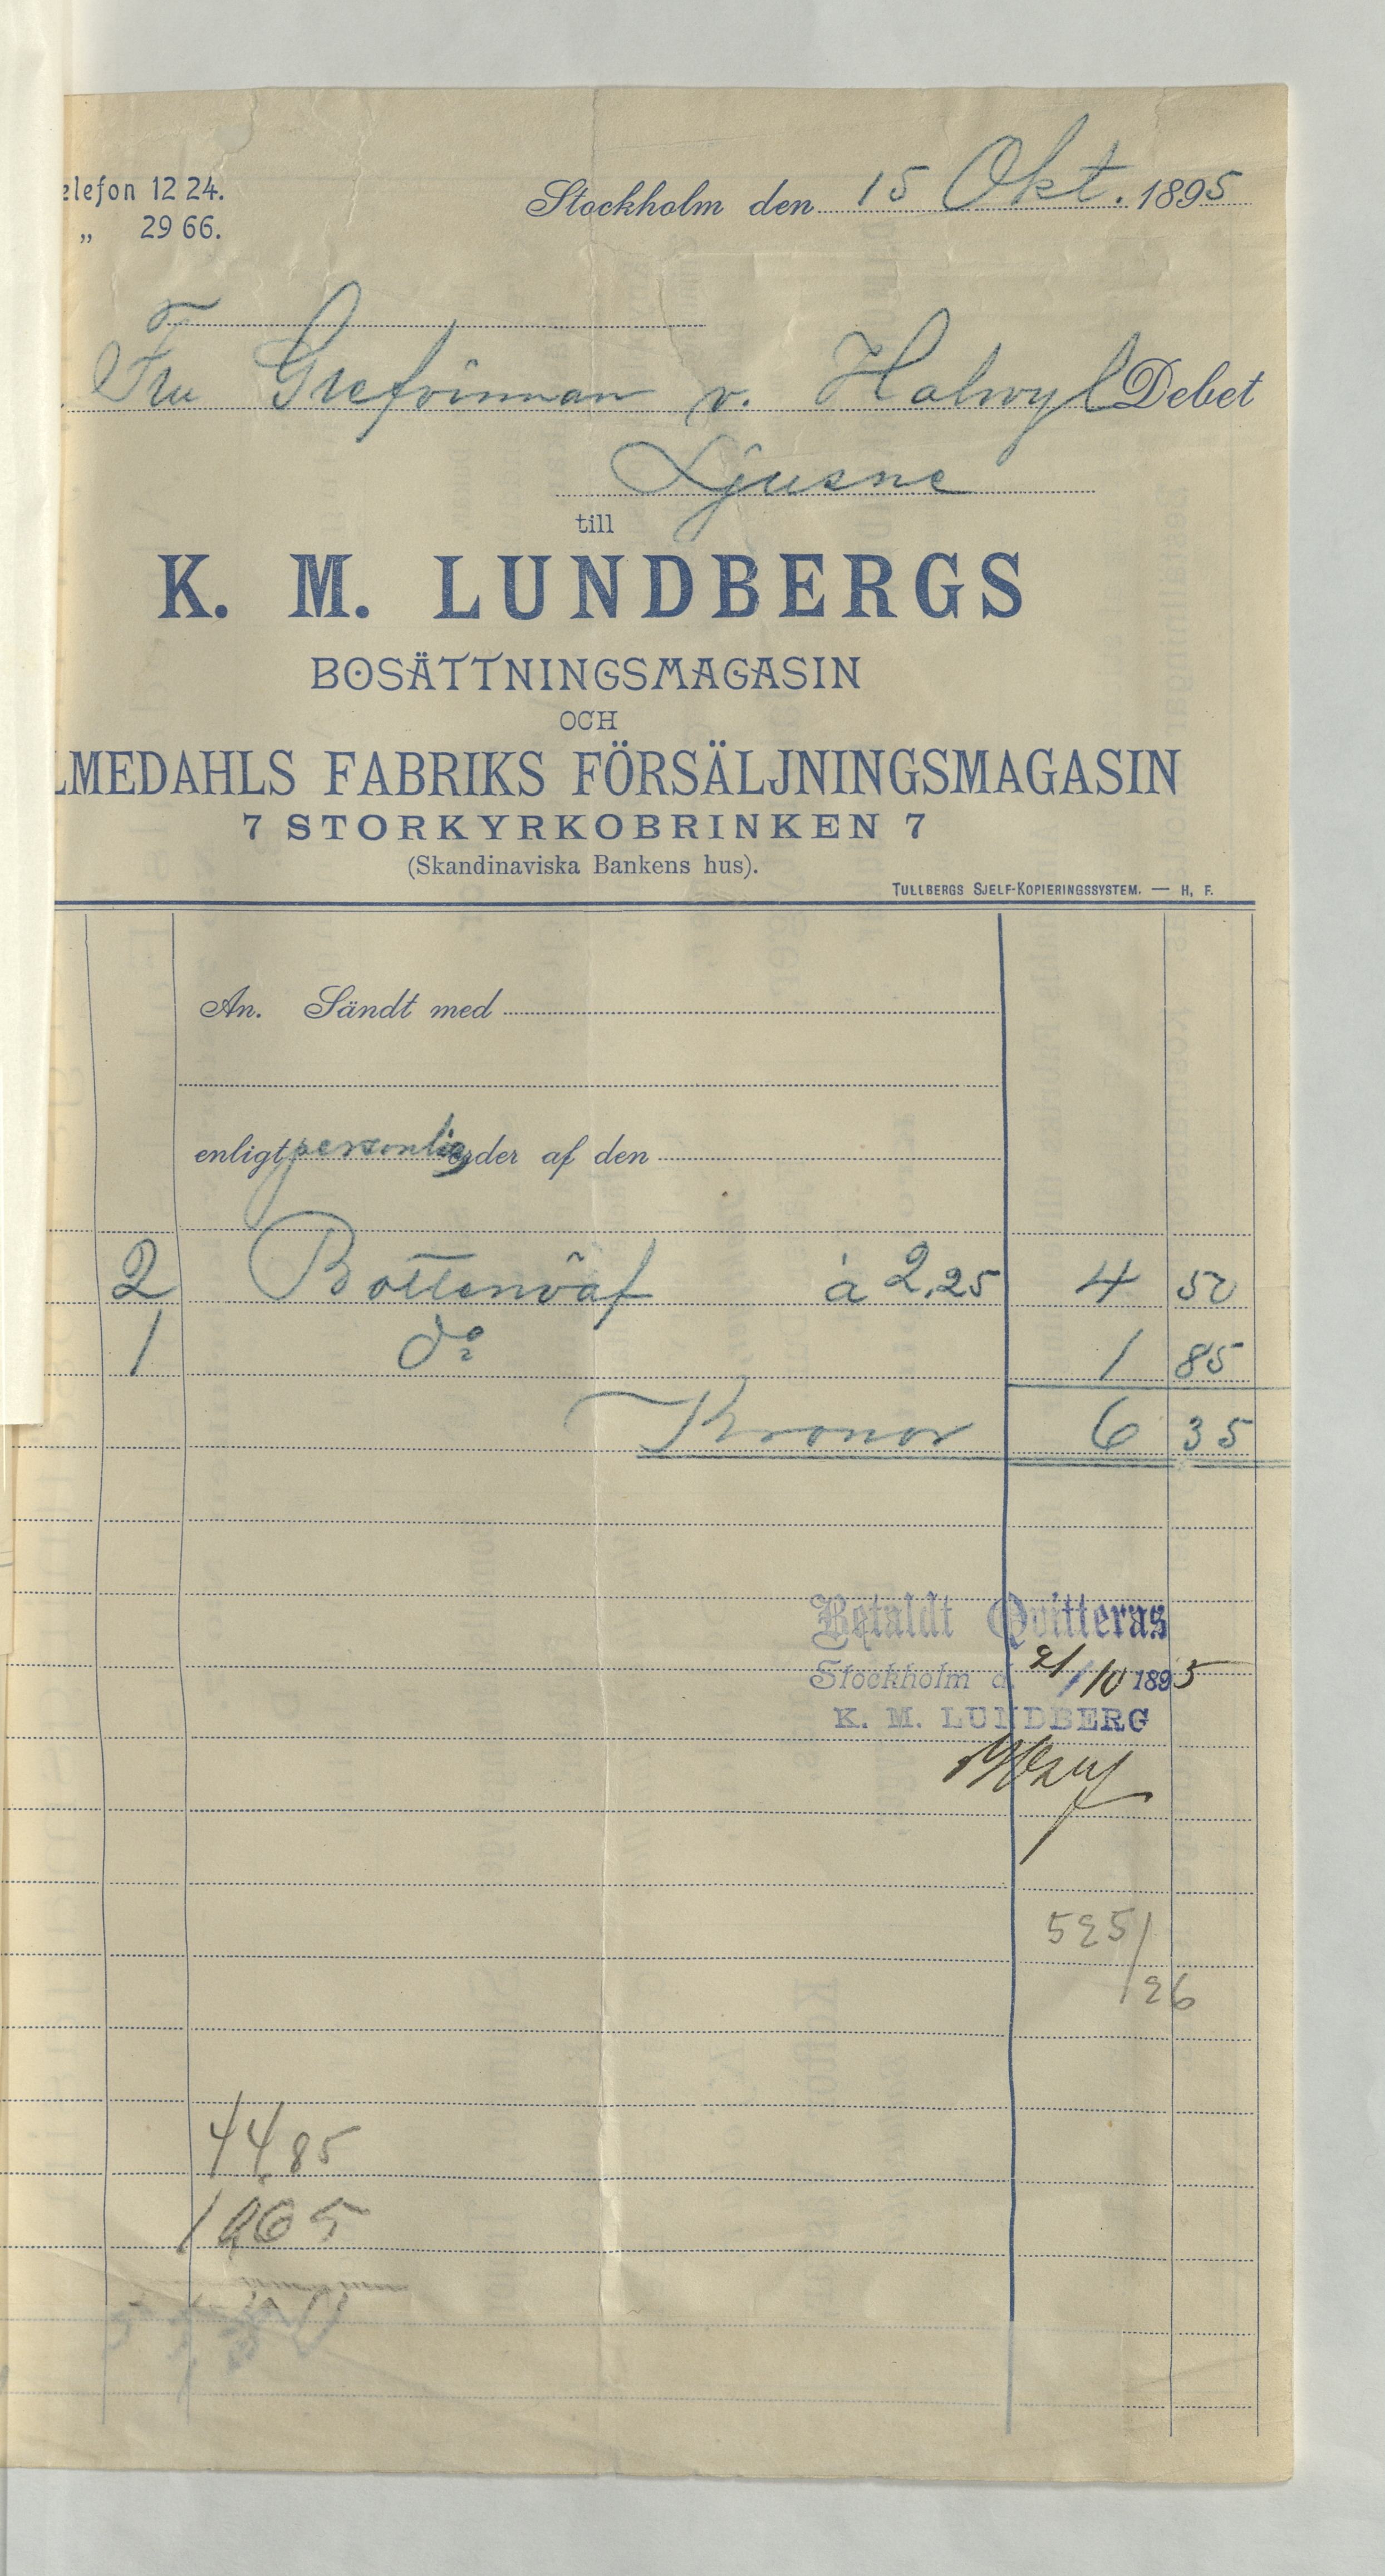 elefon 12 24.
„ 29 66.
Stockholm den 15 Okt. 1895
Fru Grefvinnan v. Halwyl Debet
Ljusne
till
K. M. LUNDBERGS
BOSÄTTNINGSMAGASIN
OCH
LMEDAHLS FABRIKS FÖRSÄLJNINGSMAGASIN
7 STORKYRKOBRINKEN 7
(Skandinaviska Bankens hus).
TULLBERGS SJELF-KOPIERINGSSYSTEM. — H. F.
An. Sändt med
enligt personlig order af den
2 Bottenväf à 2,25 4 50
1 do 1 85
Kronor 6 35
Betaldt Qvitteras
Stockholm d. 21/10 1895
K. M. LUNDBERG
525/
26
44,85